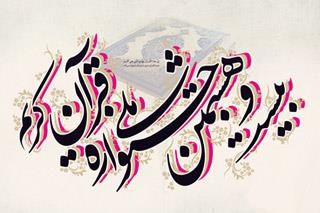 بیست و هشتمین جشنواره ملی قرآن کریم